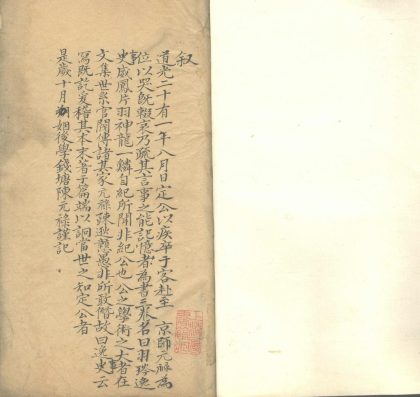 叙
道光二十有一年八月日定公以疾卒于客赴至 京師元祿為
位以哭既輟哀乃疏其言事之能記憶者為書三卷名曰羽琌逸
事 史威鳳片羽神龍一鱗自紀所聞非紀公也公之學術之大者在
文集世系官閥傳諸其家元祿陳迹愚非所敢僭故曰逸史云
寫既訖爰稽其本末著于篇端以詗當世之知定公者
是歲十月 姻後學錢塘陳元祿謹記